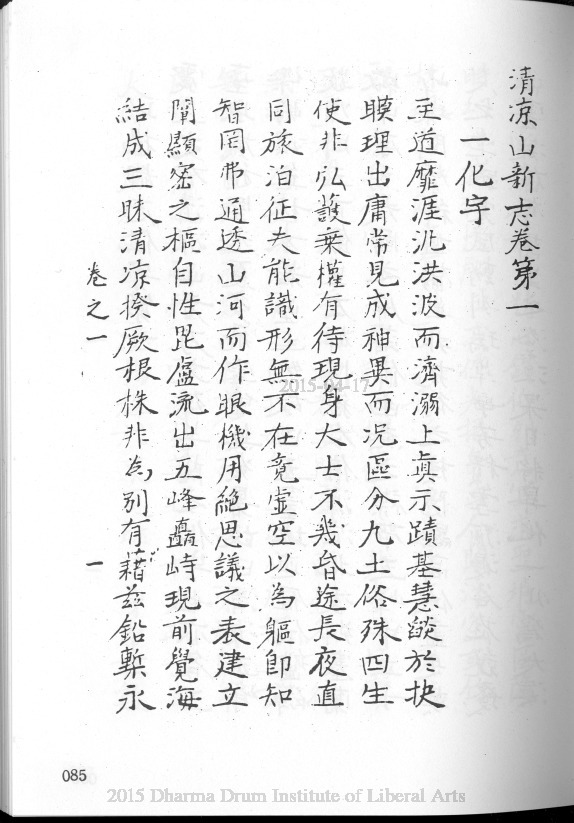 清凉山新志卷第一
一化宇
至道靡涯汎洪波而濟溺上真示蹟基慧燄於抉
瞙理出庸常見成神異而況區分九土俗殊四生
使非弘護乗權有待現身大士不幾昏途長夜直
同旅泊征夫能識形無不在竟虛空以為軀即知
智罔弗通透山河而作眼機用絶思議之表建立
闡顯宻之樞自性毘盧流出五峰矗峙現前覺海
結成三昧清凉揆厥根株非為別有藉兹鉛槧永
卷之一
一
2015-04-17
085
2015 Dharma Drum Institute of Liberal Arts